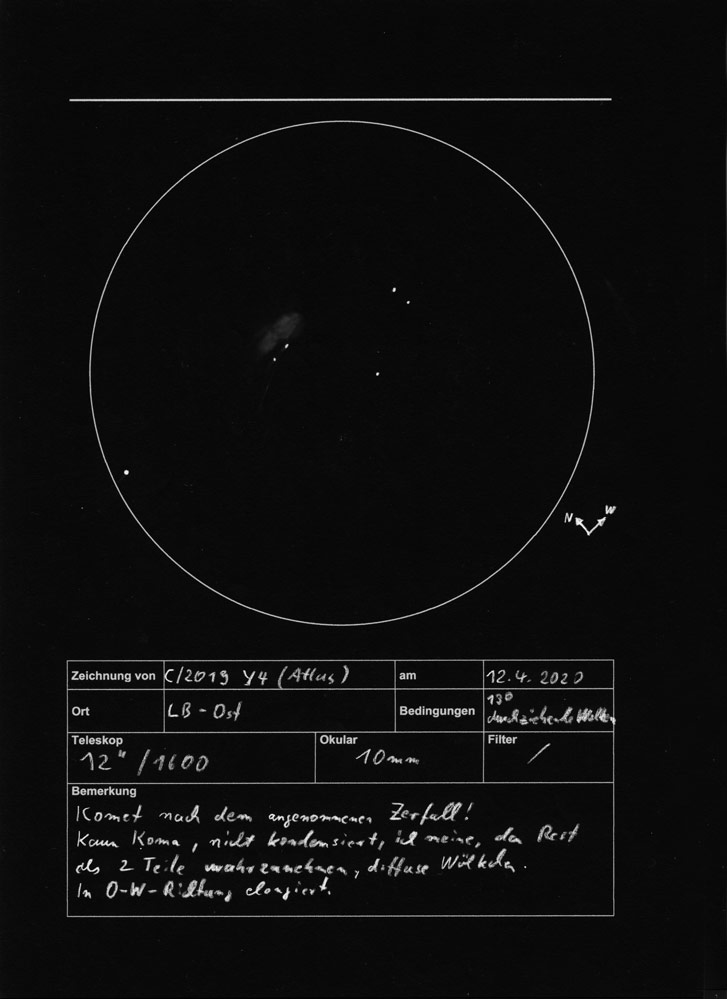 N W
Zeichnung von C/2019 Y4 (Atlas) am 12.4.2020
Ort LB-Ost Bedingungen 13° durchziehende Wolken
Teleskop Okular Filter
12" /1600 10mm /
Bemerkung
Komet nach dem angenommenen Zerfall!
Kaum Koma, nicht kondensiert, ich meine, den Rest
als 2 Teile wahrzunehmen, diffuse Wölkchen.
In O-W-Richtung elongiert.